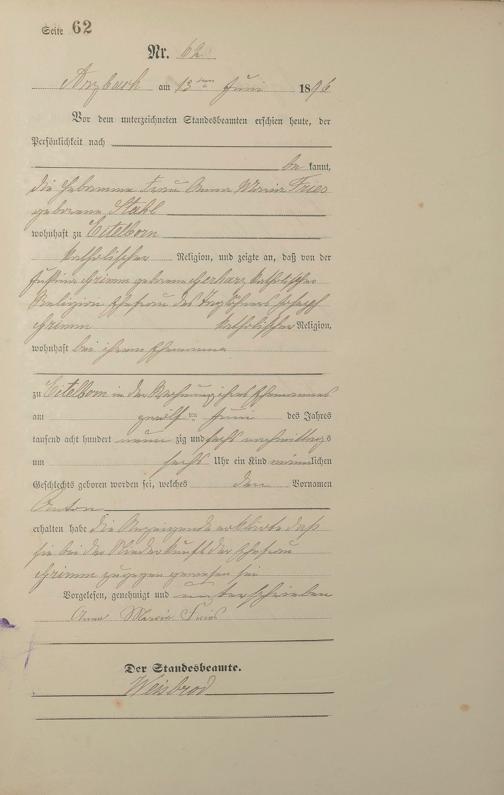 Seite 62
Nr. 62
Arzbach am 13ten Juni 1896
Vor dem unterzeichneten Standesbeamten erschien heute, der
Persönlichkeit nach
bekannt,
die Hebamme Frau Anna Maria Fries
geborene Stahl
wohnhaft zu Eitelborn
katholischer Religion, und zeigte an, daß von der
Grimm geborene Gerharz katholischer
Religion Ehefrau des Joseph
Grimm katholischer Religion,
wohnhaft bei ihrem Ehemanne
zu Eitelborn in der Wohnung ihres Ehemannes
am zwölften Juni des Jahres
tausend acht hundert neunzig und sechs nachmittags
um sechs Uhr ein Kind männlichen
Geschlechts geboren worden sei, welches den Vornamen
Anton
erhalten habe die Anzeigende erklärte daß
sie bei der Niederkunft der Ehefrau
Grimm zugegen gewesen sei
Vorgelesen, genehmigt und unterschrieben
Anna Maria Fries
Der Standesbeamte.
Weinbrod